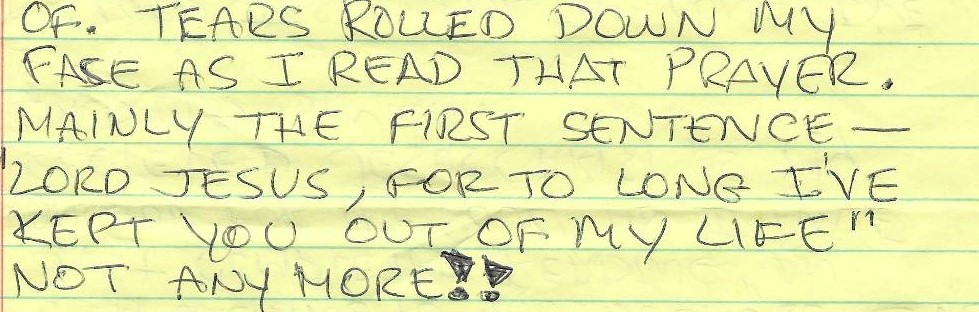 OF. TEARS ROLLED DOWN MY
FASE AS I READ THAT PRAYER.
MAINLY THE FIRST SENTENCE —
"LORD JESUS, FOR TO LONG I'VE
KEPT YOU OUT OF MY LIFE"
NOT ANY MORE!!